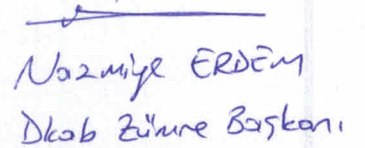 Nazmiye ERDEM
Dkab Zümre Başkanı